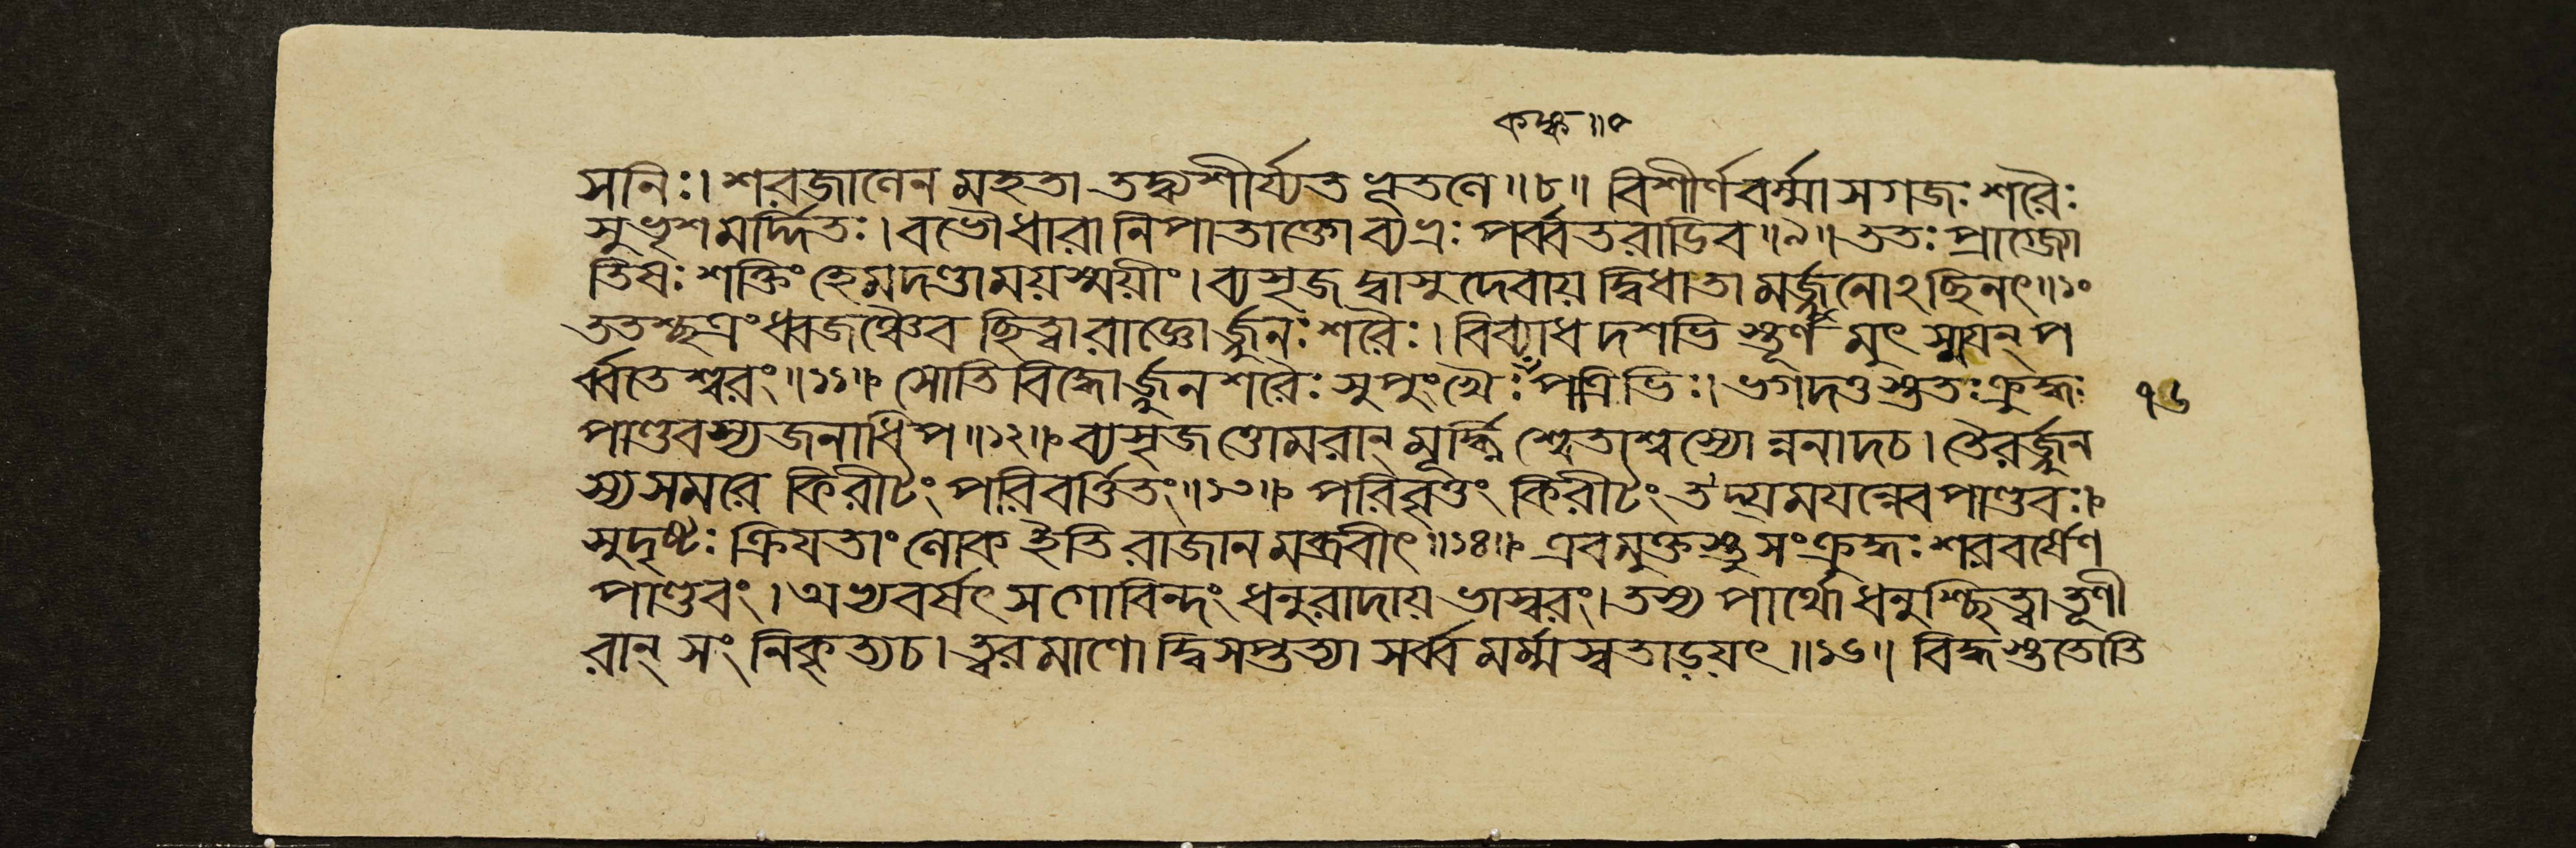 কঙ্ক॥০
সনিঃ। শরজালেন মহতা তদ্ব্যশীর্য্যত ভূতলে॥৮॥ বিশীর্ণবর্ম্মা সগজঃ শরৈঃ
সুভৃশমর্দ্দিতঃ। বভৌ ধারানিপাতাক্তো ব্যভ্রঃ পর্ব্বতরাডিব॥৯॥ ততঃ প্রাগ্জ্যো
তিষঃ শক্তিং হেমদণ্ডাময়স্ময়ীং। ব্যসৃজদ্বাসুদেবায় দ্বিধাতামর্জ্জুনোঽছিনৎ॥১০
ততশ্ছত্রং ধ্বজঞ্চৈব ছিত্বা রাজ্ঞোর্জ্জুনঃ শরৈঃ। বিব্যাধ দশভিস্তূর্ণমুৎস্ময়ন্ প
র্ব্বতেশ্বরং॥১১॥ সোতিবিদ্ধোর্জ্জুনশরৈঃ সুপুংখৈঃ পত্রিভিঃ। ভগদত্তস্ততঃ ক্রুদ্ধঃ
৭৬
পাণ্ডবস্য জনাধিপ॥১২॥ ব্যসৃজত্তোমরান্ মূর্দ্ধ্নি শ্বেতাশ্বস্যোন্ননাদচ। তৈরর্জ্জুন
স্য সমরে কিরীটং পরিবর্ত্তিতং॥১৩॥ পরিবৃত্তং কিরীটং তদ্যময়ন্নেব পাণ্ডবঃ।
সুদৃষ্টঃ ক্রিয়তাং লোক ইতি রাজানমব্রবীৎ॥১৪॥ এবমুক্তস্তু সংক্রুদ্ধঃ শরবর্ষেণ
পাণ্ডবং। অভ্যবর্ষৎ সগোবিন্দং ধনুরাদায় ভাস্বরং। তস্য পার্থো ধনুশ্ছিত্বা তূণী
রান্ সংনিকৃত্যচ। ত্বরমাণো দ্বিসপ্তত্যা সর্ব্বমর্ম্মস্বতাড়য়ৎ॥১৬॥ বিদ্ধস্ততোতি